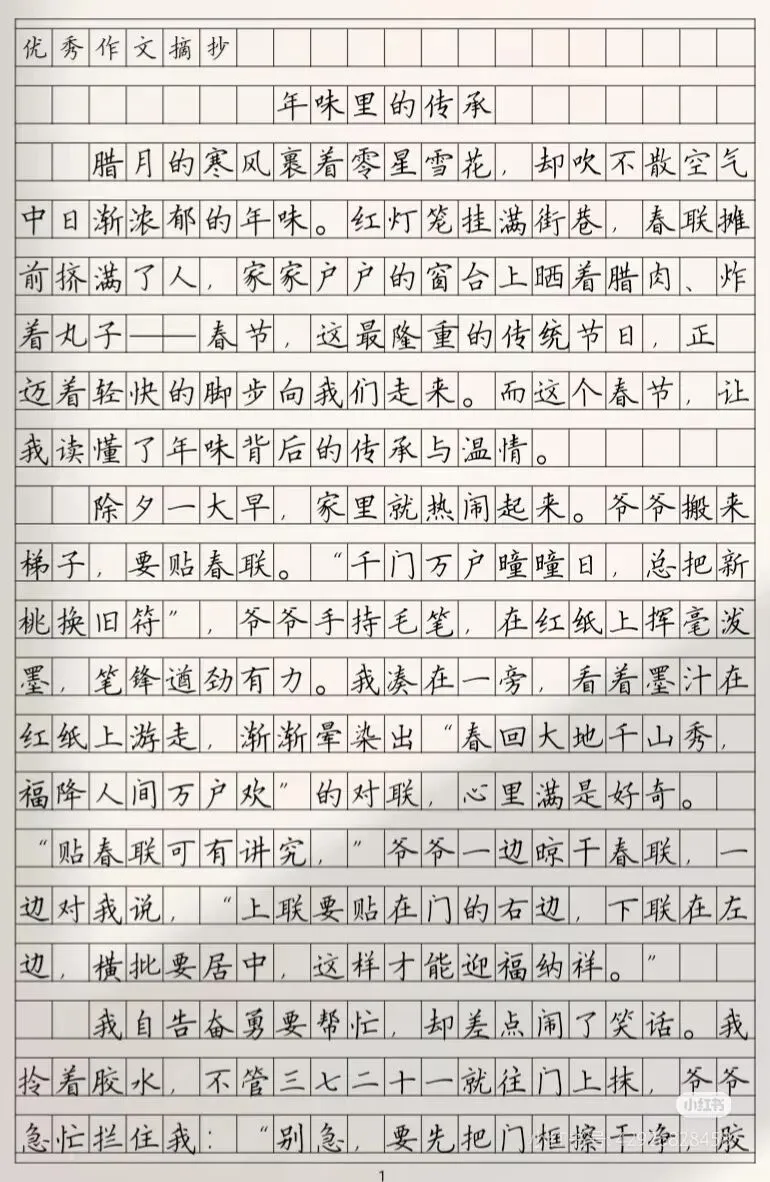 优秀作文摘抄
年味里的传承
腊月的寒风裹着零星雪花，却吹不散空气
中日渐浓郁的年味。红灯笼挂满街巷，春联摊
前挤满了人，家家户户的窗台上晒着腊肉、炸
着丸子——春节，这最隆重的传统节日，正
迈着轻快的脚步向我们走来。而这个春节，让
我读懂了年味背后的传承与温情。
除夕一大早，家里就热闹起来。爷爷搬来
梯子，要贴春联。“千门万户曈曈日，总把新
桃换旧符”，爷爷手持毛笔，在红纸上挥毫泼
墨，笔锋遒劲有力。我凑在一旁，看着墨汁在
红纸上游走，渐渐晕染出“春回大地千山秀，
福降人间万户欢”的对联，心里满是好奇。
“贴春联可有讲究，”爷爷一边晾干春联，一
边对我说，“上联要贴在门的右边，下联在左
边，横批要居中，这样才能迎福纳祥。”
我自告奋勇要帮忙，却差点闹了笑话。我
拎着胶水，不管三七二十一就往门上抹，爷爷
急忙拦住我：“别急，要先把门框擦干净，胶
小红书
1